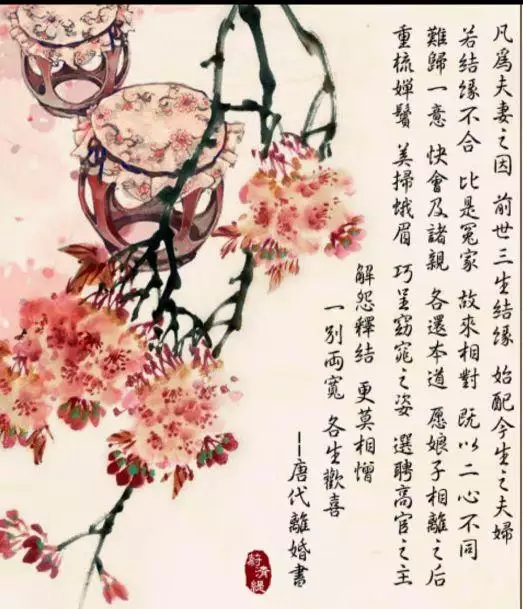 凡為夫妻之因 前世三生結緣 始配今生之夫婦
若結緣不合 比是冤家 故來相對 既以二心不同
難歸一意 快會及諸親 各還本道 愿娘子相離之后
重梳嬋鬢 美掃蛾眉 巧呈窈窕之姿 選聘高官之主
解怨釋結 更莫相憎
一別兩寬 各生歡喜
——唐代離婚書